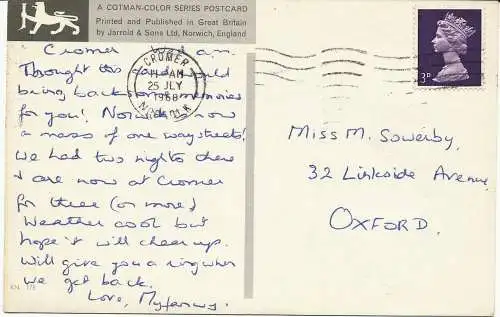 A COTMAN-COLOR SERIES POSTCARD
Printed and Published in Great Britain
by Jarrold & Sons Ltd, Norwich, England
Cromer
Thought this card would
bring back some memories
for you! Norwich is now
a mass of one way streets!
We had two nights there
& are now at Cromer
for three (or more)
Weather cool but
hope it will cheer up.
Will give you a ring when
we get back.
Love, Myfanwy.
CROMER
11-AM
25 JLY
1968
NORFOLK
3D
Miss M. Sowerby,
32 Linkside Avenue,
OXFORD.